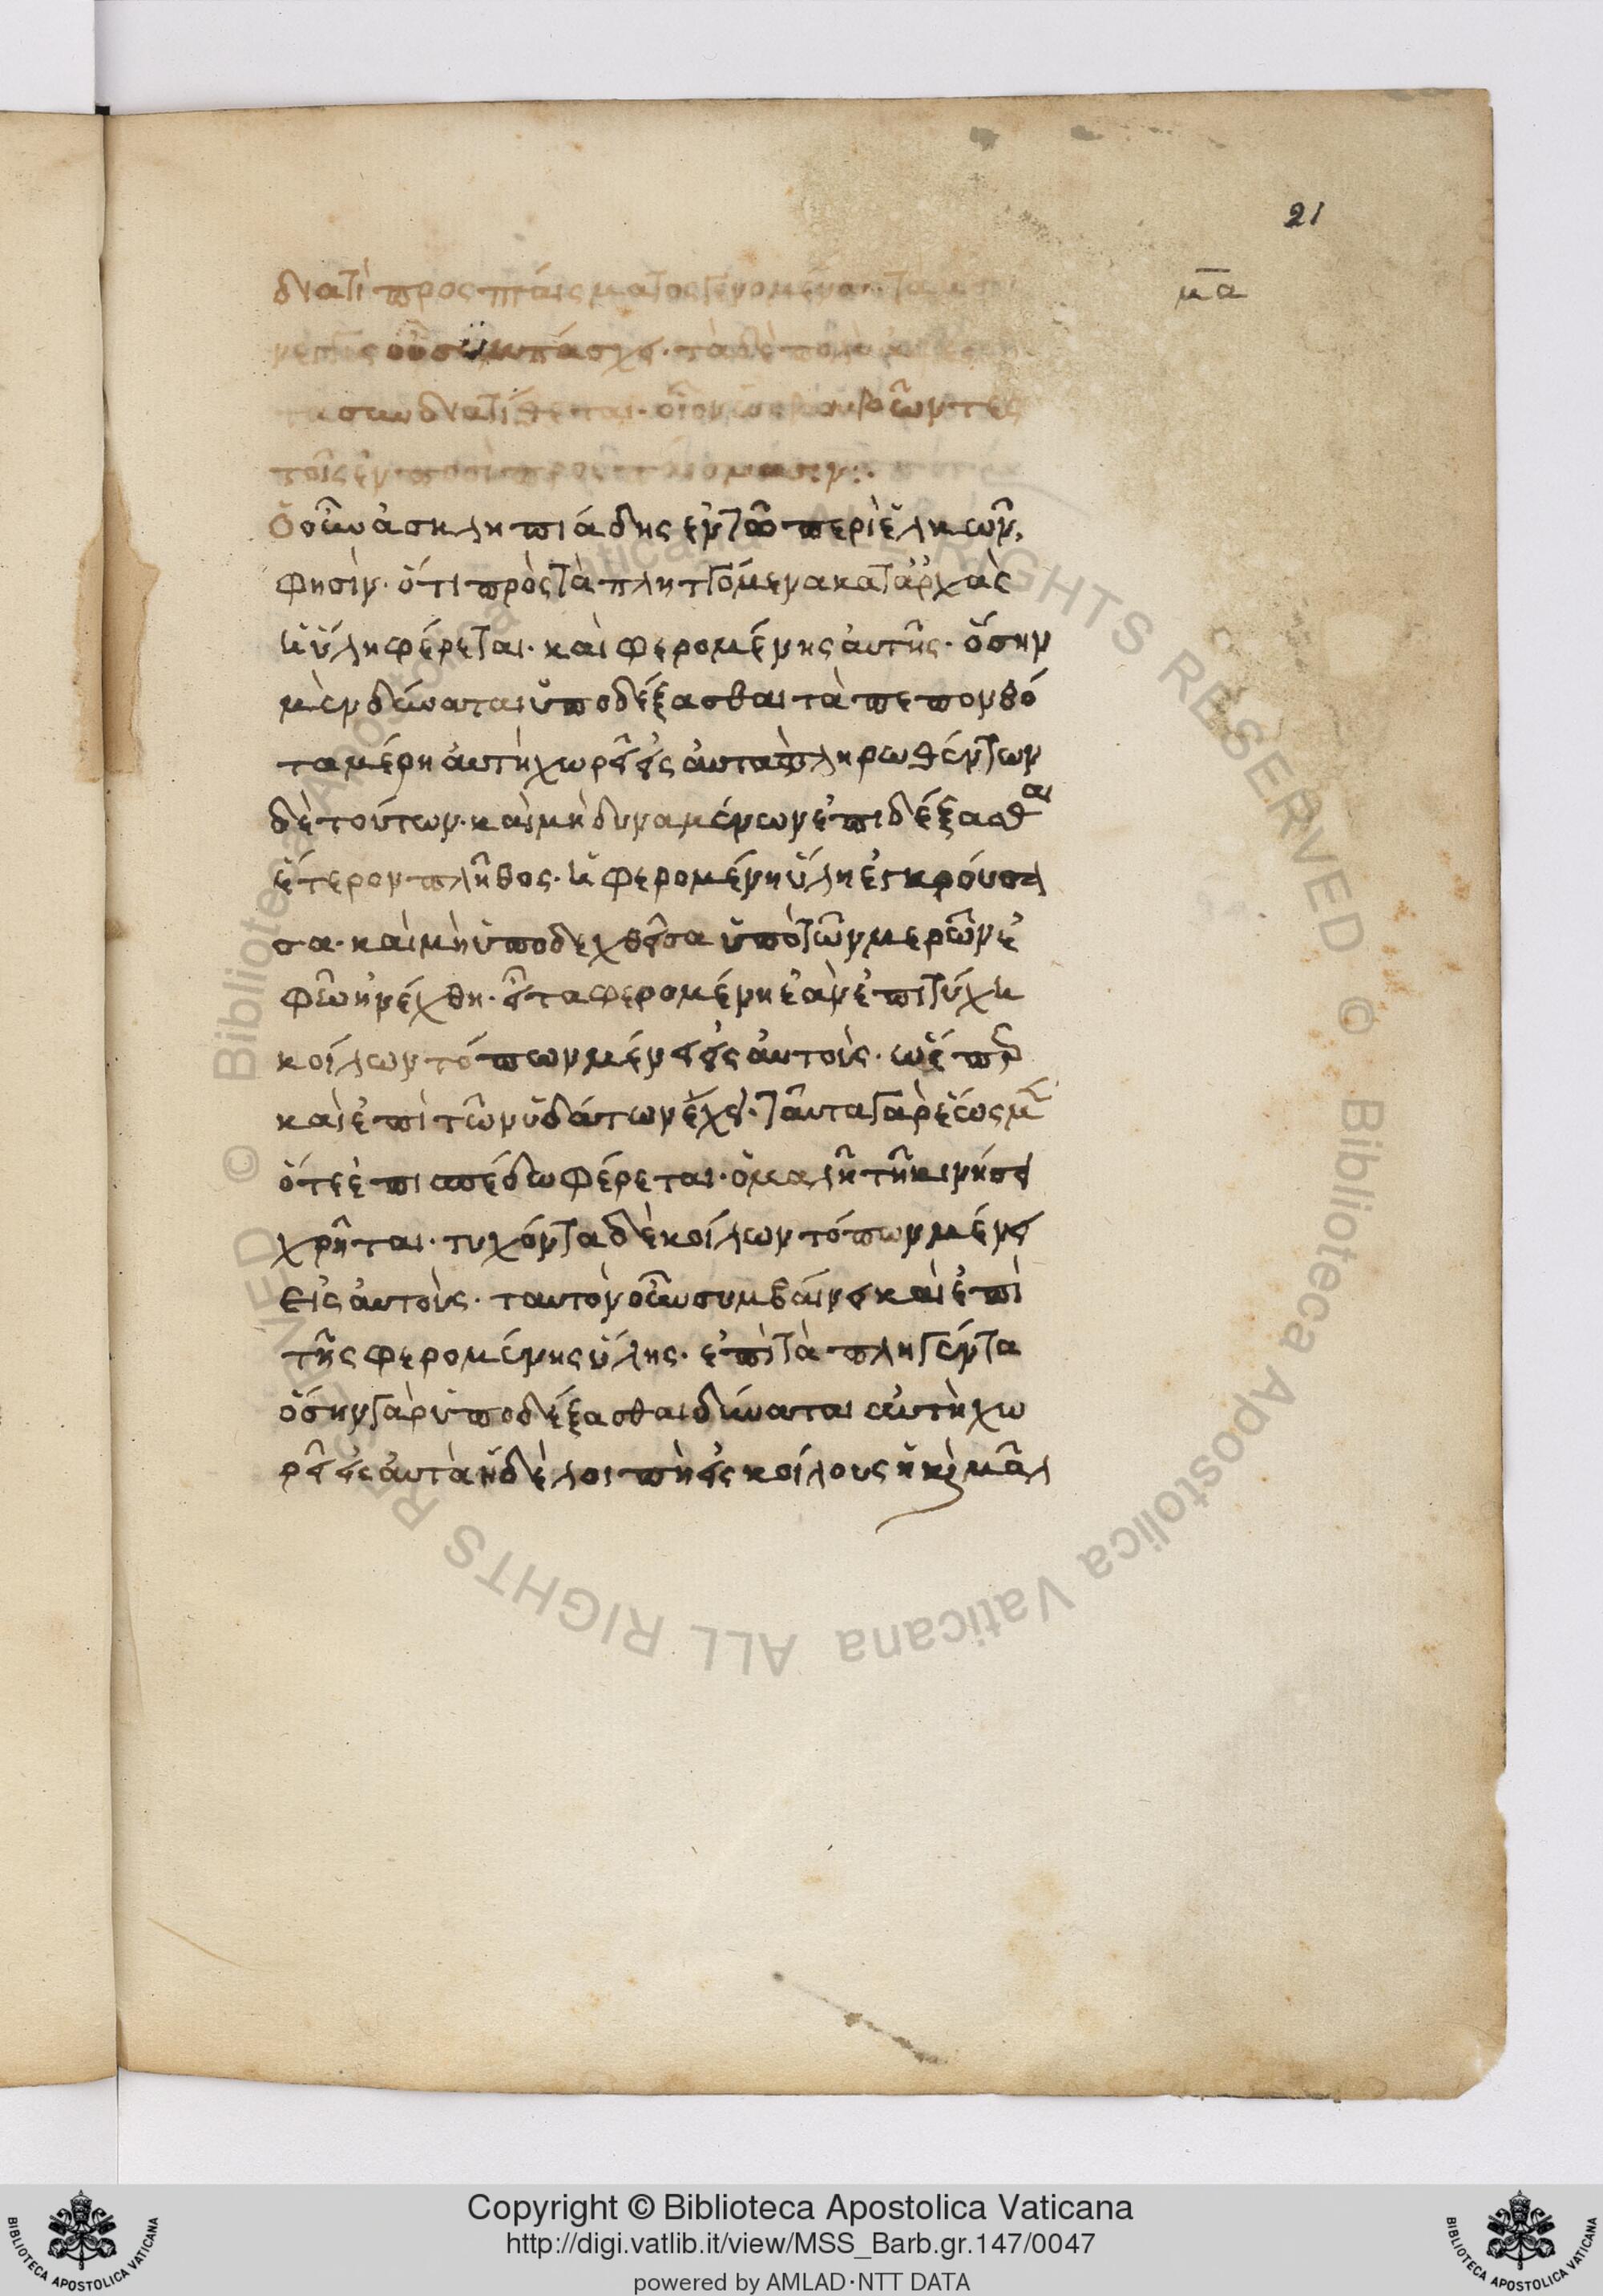 21
μα
διατί προσπταίσματος γενομένου τὰ μὲν
τοῖς ἐν ποσὶ προσπταίσμασιν:
Ὁ οὖν ἀσκληπιάδης ἐν τῶ περὶ ἑλκῶν,
φησὶν· ὅτι πρὸς τὰ πληττόμενα κατ' ἀρχὰς
ἡ ὕλη φέρεται· καὶ φερομένης αὐτῆς· ὅσην
μὲν δύναται ὑποδέξασθαι τὰ πεπονθό
τα μέρη αὐτὴ χωρεῖ εἰς αὐτὰ πληρωθέντων
δὲ τούτων· καὶ μὴ δυναμένων ἐπιδέξασθαι
ἕτερον πλῆθος· ἡ φερομένη ὕλη ἐγκρούσα
σα· καὶ μὴ ὑποδεχθεῖσα ὑπὸ τῶν μερῶν ἐ
φ' ὧν ἠνέχθη· εἶτα φερομένη ἐὰν ἐπιτύχη
κοίλων τόπων μένει εἰς αὐτούς· ὥσπερ
καὶ ἐπὶ τῶν ὑδάτων ἔχει· ταῦτα γὰρ ἕως μὲν
ὅτε ἐπιπέδω φέρεται· ὁμαλῆ τῆ κινήσει
χρῆται· τυχόντα δὲ κοίλων τόπων μένει
εἰς αὐτούς· ταυτὸν οὖν συμβαίνει καὶ ἐπὶ
τῆς φερομένης ὕλης· ἐπὶ τὰ πληγέντα
ὅσην γὰρ ὑποδέξασθαι δύναται αὐτὴ χω
ρεῖ εἰς αὐτὰ ἡ δὲ λοιπὴ εἰς κοίλους ἢ καὶ μᾶλ
Copyright © Biblioteca Apostolica Vaticana
http://digi.vatlib.it/view/MSS_Barb.gr.147/0047
powered by AMLAD·NTT DATA
BIBLIOTECA APOSTOLICA VATICANA
BIBLIOTECA APOSTOLICA VATICANA
© Biblioteca Apostolica Vaticana ALL RIGHTS RESERVED © Biblioteca Apostolica Vaticana ALL RIGHTS RESERVED